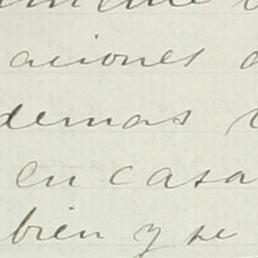 aciones
demas
en casa
bien y se